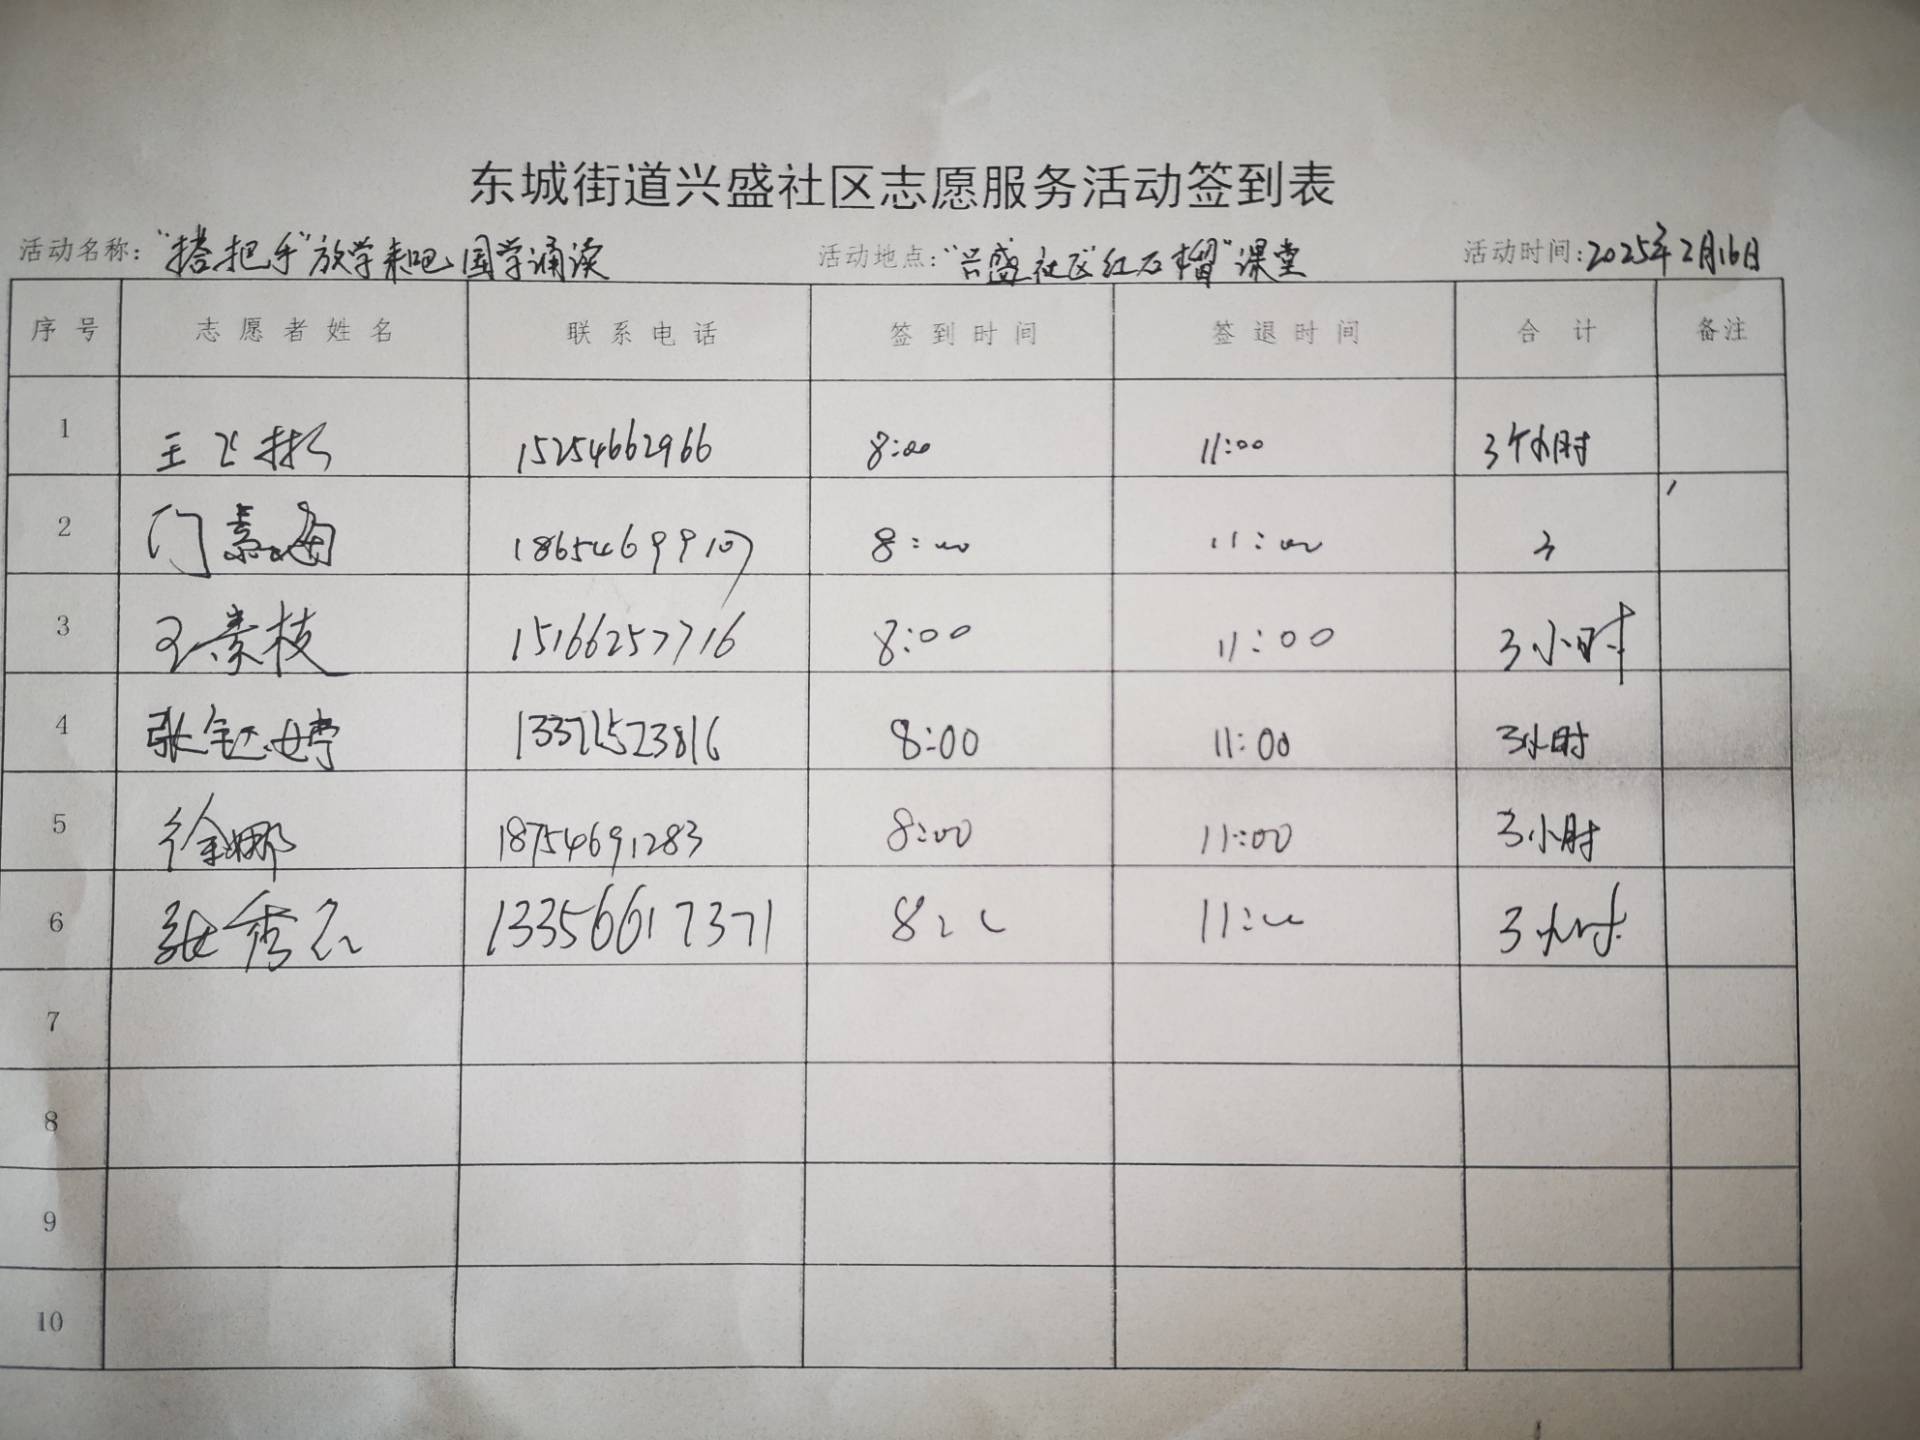 东城街道兴盛社区志愿服务活动签到表
活动名称:“搭把手”放学来吧国学诵读 活动地点:“兴盛社区红石榴”课堂 活动时间:2025年2月16日
序号 志愿者姓名 联系电话 签到时间 签退时间 合计 备注
1 王飞彬 15254662966 8:00 11:00 3个小时
2 门素海 18654699107 8:00 11:00 3
3 王素枝 15166257716 8:00 11:00 3小时
4 张钰婷 13371523816 8:00 11:00 3小时
5 徐娜 18754691283 8:00 11:00 3小时
6 张秀 13356617371 8:00 11:00 3小时
7
8
9
10